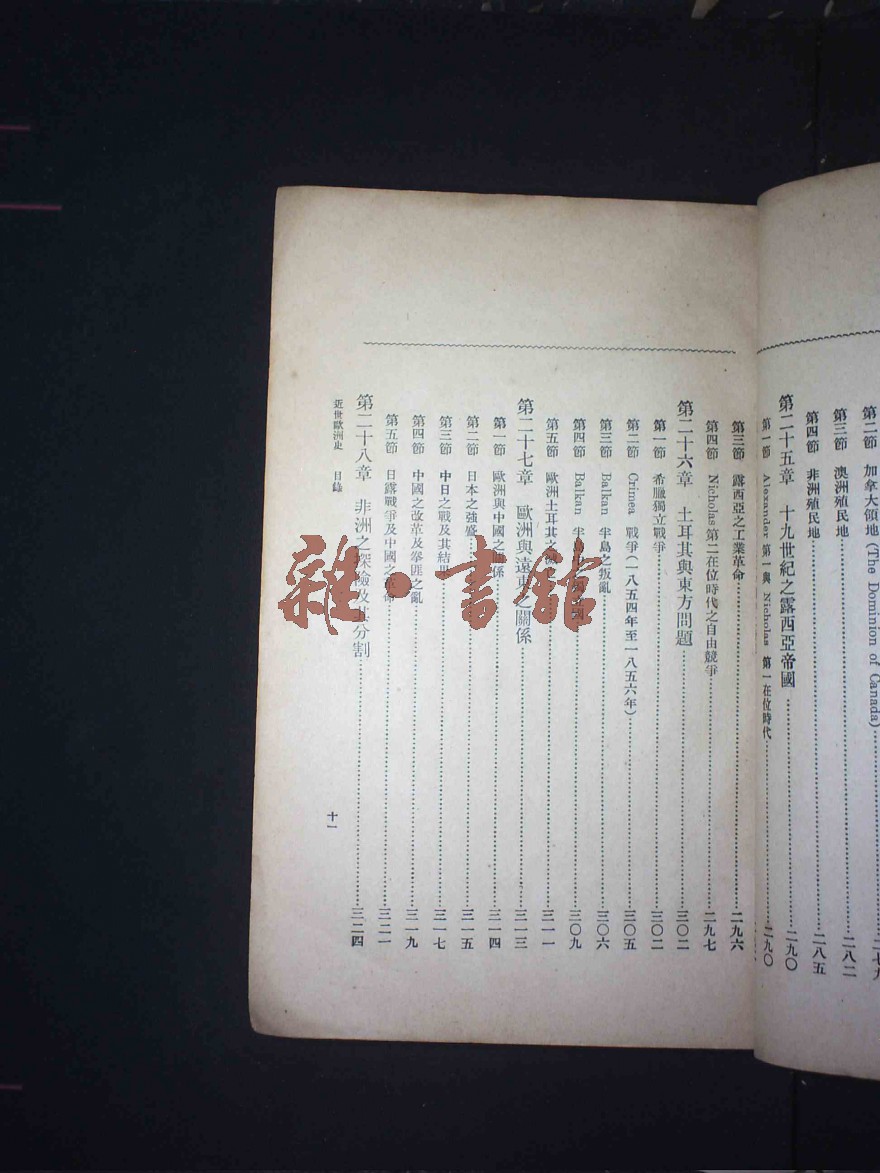 第二節 加拿大領地(The Dominion of Canada)
第三節 澳洲殖民地 二八二
第四節 非洲殖民地 二八五
第二十五章 十九世紀之露西亞帝國 二九〇
第一節 Alexander 第一與 Nicholas 第一在位時代 二九〇
第三節 露西亞之工業革命 二九六
第四節 Nicholas 第二在位時代之自由競爭 二九七
第二十六章 土耳其與東方問題 三〇二
第一節 希臘獨立戰爭 三〇二
第二節 Crimea 戰爭(一八五四年至一八五六年) 三〇五
第三節 Balkan 半島之叛亂 三〇六
第四節 Balkan 半島 三〇九
第五節 歐洲土耳其之 三一一
第二十七章 歐洲與遠東之關係 三一三
第一節 歐洲與中國之關係 三一四
第二節 日本之強盛 三一五
第三節 中日之戰及其結 三一七
第四節 中國之改革及拳匪之亂 三一九
第五節 日露戰爭及中國之革命 三二一
第二十八章 非洲之探險及其分割 三二四
近世歐洲史 目錄
十一
雜·書館